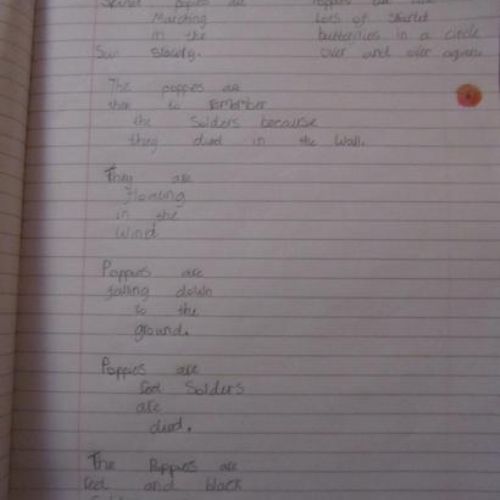 Marching
in the
Slowly.
Lots of
butterflies in a circle
over and over again
The poppies are
ther to remember
the Solders because
they died in the Wall.
They are
floating
in the
Wind
Poppies are
falling down
to the
ground.
Poppies are
red Solders
are
died.
The Poppies are
red and black